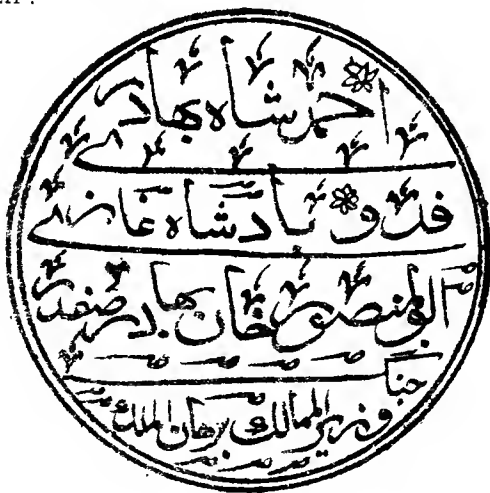 احمد شاه بهادر
فدوی بادشاه غازی
ابوالمنصور خان بهادر صفدر
جنگ
وزیر الممالک برهان الملک